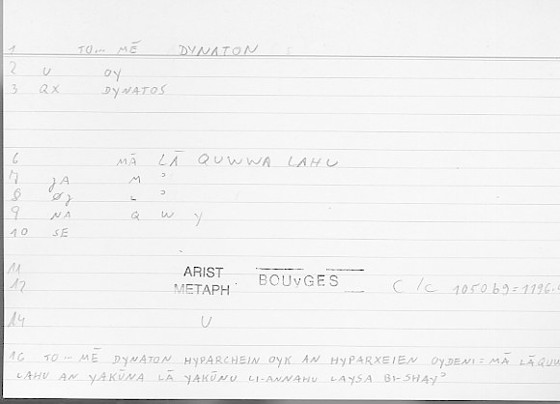 1 TO-- MĒ DYNATON
2 U OY
3 QX DYNATOS
6 MĀ LĀ QUWWA LAHU
7 JA M ʾ
8 ØJ L ʾ
9 NA Q W Y
10 SE
11
12 ARIST METAPH BOUYGES C/C 1050b9=1196.
14 U
16 TO-- MĒ DYNATON HYPARCHEIN OYK AN HYPARXEIEN OYDENI = MĀ LĀ QUW
LAHU AN YAKŪNA LĀ YAKŪNU LI-ANNAHU LAYSA BI-SHAYʾ